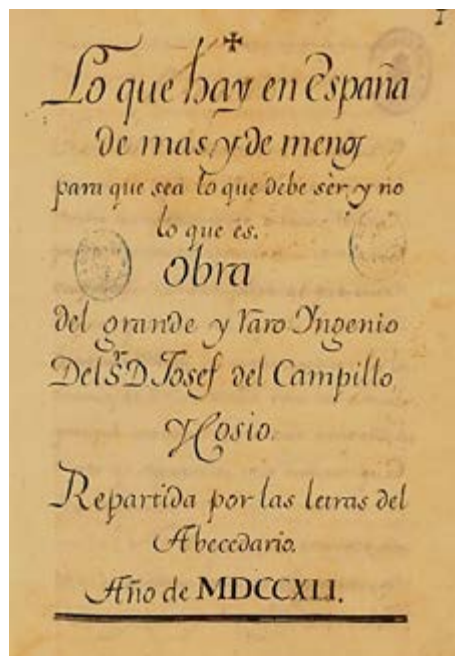 1
Lo que hay en España
de mas, y de menos
para que sea lo que debe sèr, y no
lo que es.
Obra
del grande y raro Yngenio
Del Sr. D. Josef del Campillo,
Y Cosio.
Repartida por las letras del
Abecedario.
Año de MDCCXLI.